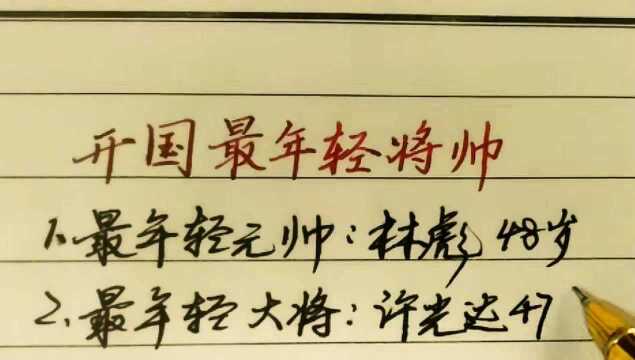 开国最年轻将帅
1、最年轻元帅：林彪 48岁
2、最年轻大将：许光达47